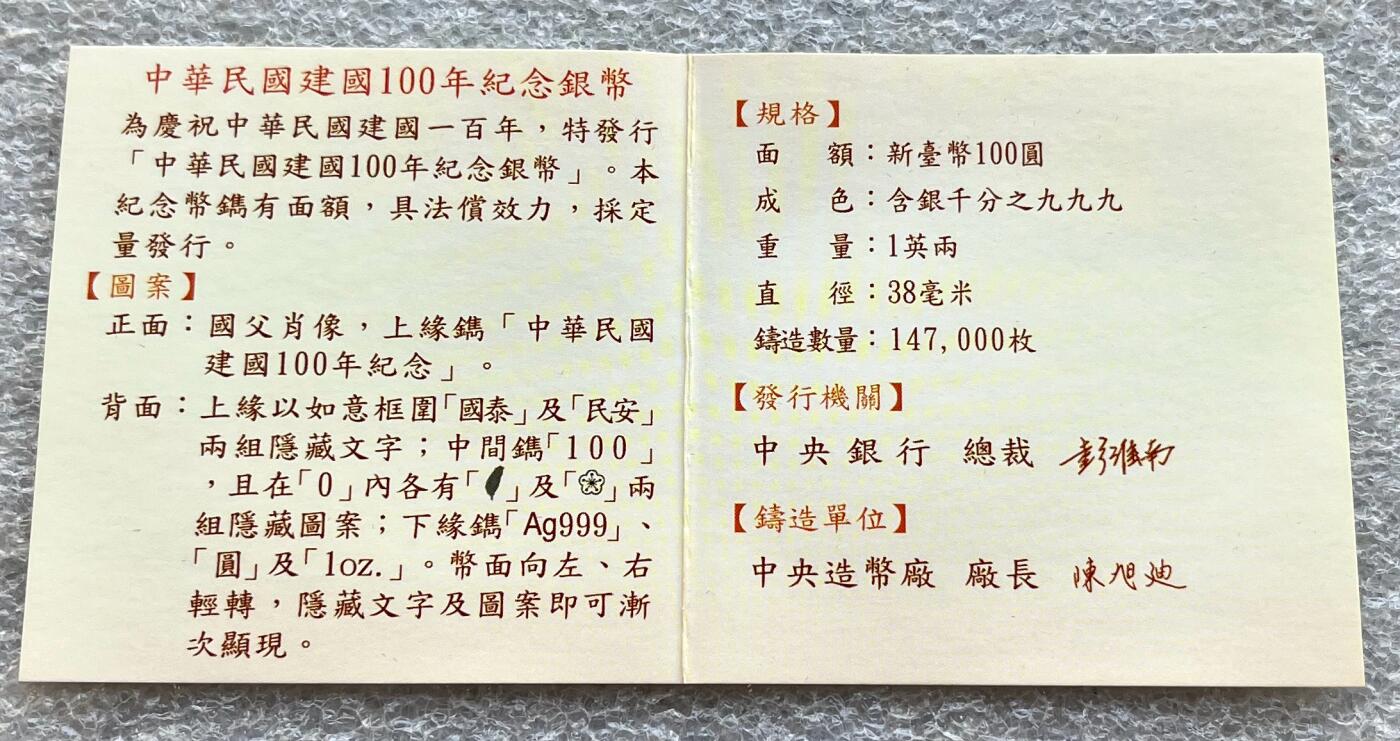 中華民國建國100年紀念銀幣
為慶祝中華民國建國一百年，特發行
「中華民國建國100年紀念銀幣」。本
紀念幣鐫有面額，具法償效力，採定
量發行。
【圖案】
正面：國父肖像，上緣鐫「中華民國
建國100年紀念」。
背面：上緣以如意框圍「國泰」及「民安」
兩組隱藏文字；中間鐫「100」
，且在「0」內各有「」及「」兩
組隱藏圖案；下緣鐫「Ag999」、
「圓」及「1oz.」。幣面向左、右
輕轉，隱藏文字及圖案即可漸
次顯現。
【規格】
面　額：新臺幣100圓
成　色：含銀千分之九九九
重　量：1英兩
直　徑：38毫米
鑄造數量：147,000枚
【發行機關】
中央銀行 總裁 彭淮南
【鑄造單位】
中央造幣廠 廠長 陳旭迪